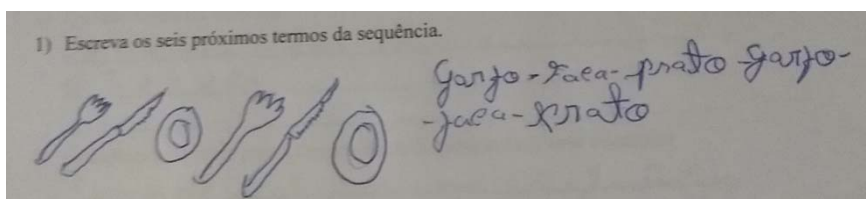 1) Escreva os seis próximos termos da sequência.
Garfo-faca-prato-garfo-
-faca-prato